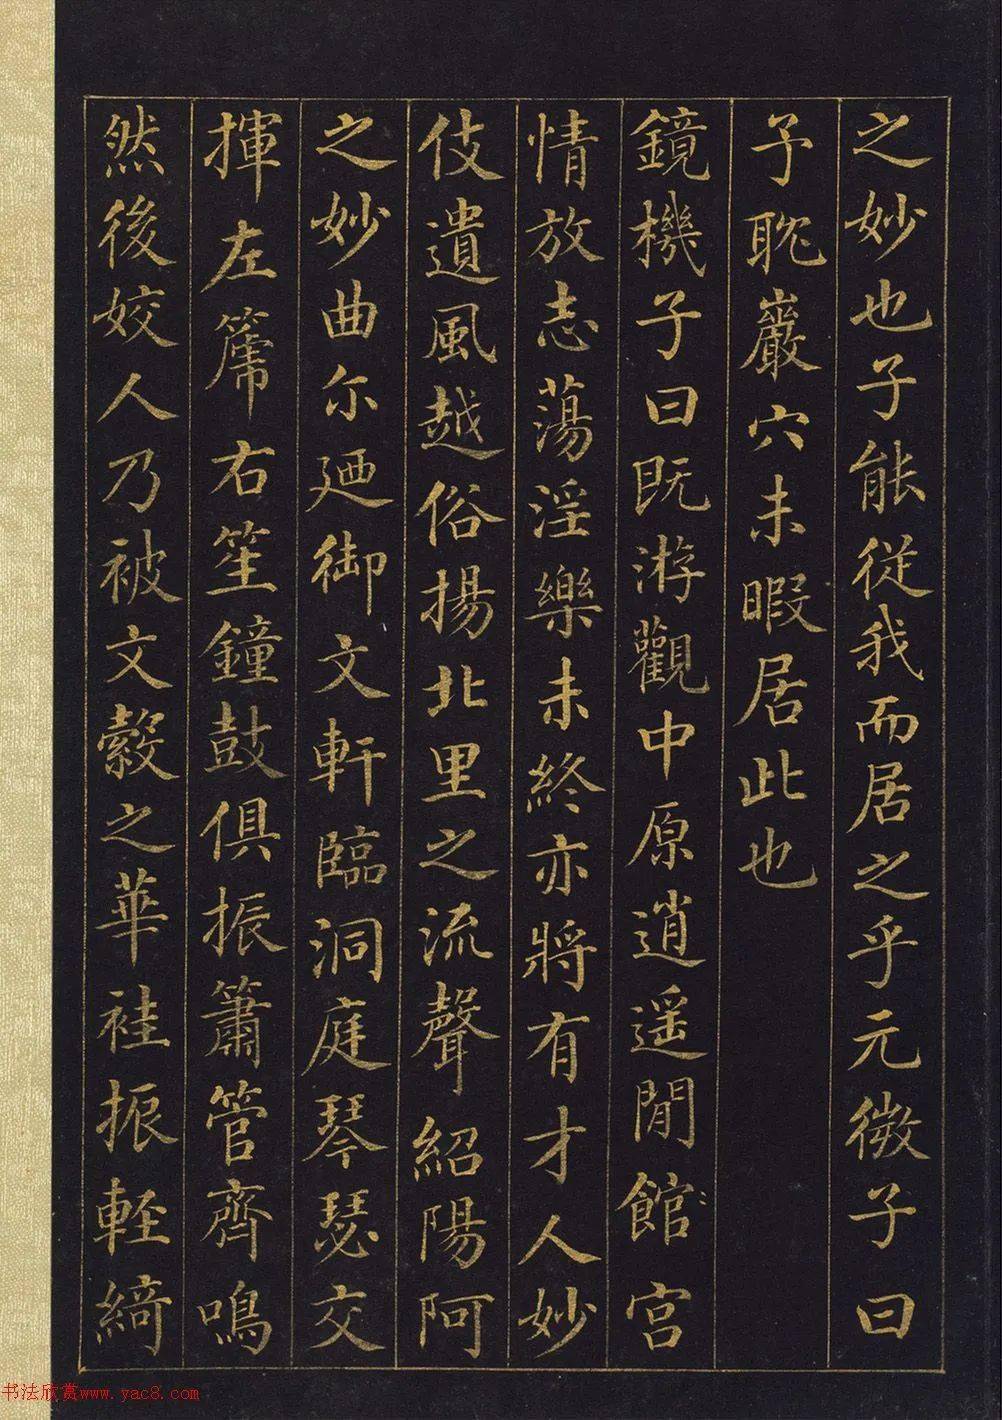 之妙也子能從我而居之乎元微子曰
予耽巖穴未暇居此也
鏡機子曰既游觀中原逍遥閒館宮
情放志蕩淫樂未終亦將有才人妙
伎遺風越俗揚北里之流聲紹陽阿
之妙曲尔廼御文軒臨洞庭琴瑟交
揮左篪右笙鐘鼓俱振簫管齊鳴
然後姣人乃被文縠之華袿振軽綺
书法欣赏www.yac8.com